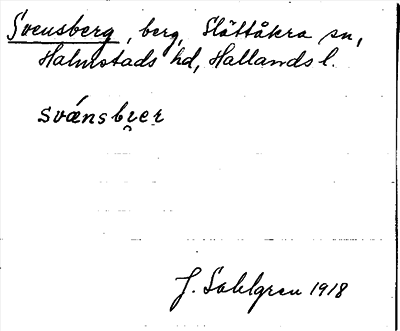 Svensberg, berg, Slättåkra sn,
Halmstads hd, Hallands l.
svánsbver
J. Sahlgren 1918